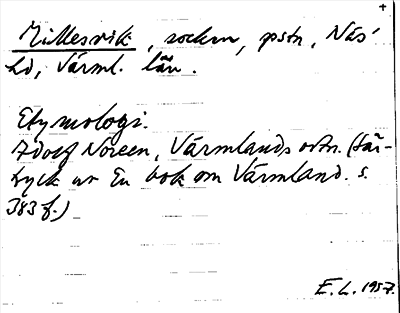 +
Millesvik, sockn, pstn, Näs'
hd, Värml. län.
Etymologi.
Adolf Noreen, Värmlands ortn. (Sär-
tryck ur En bok om Värmland. s.
383 f.)
E. L. 1957.